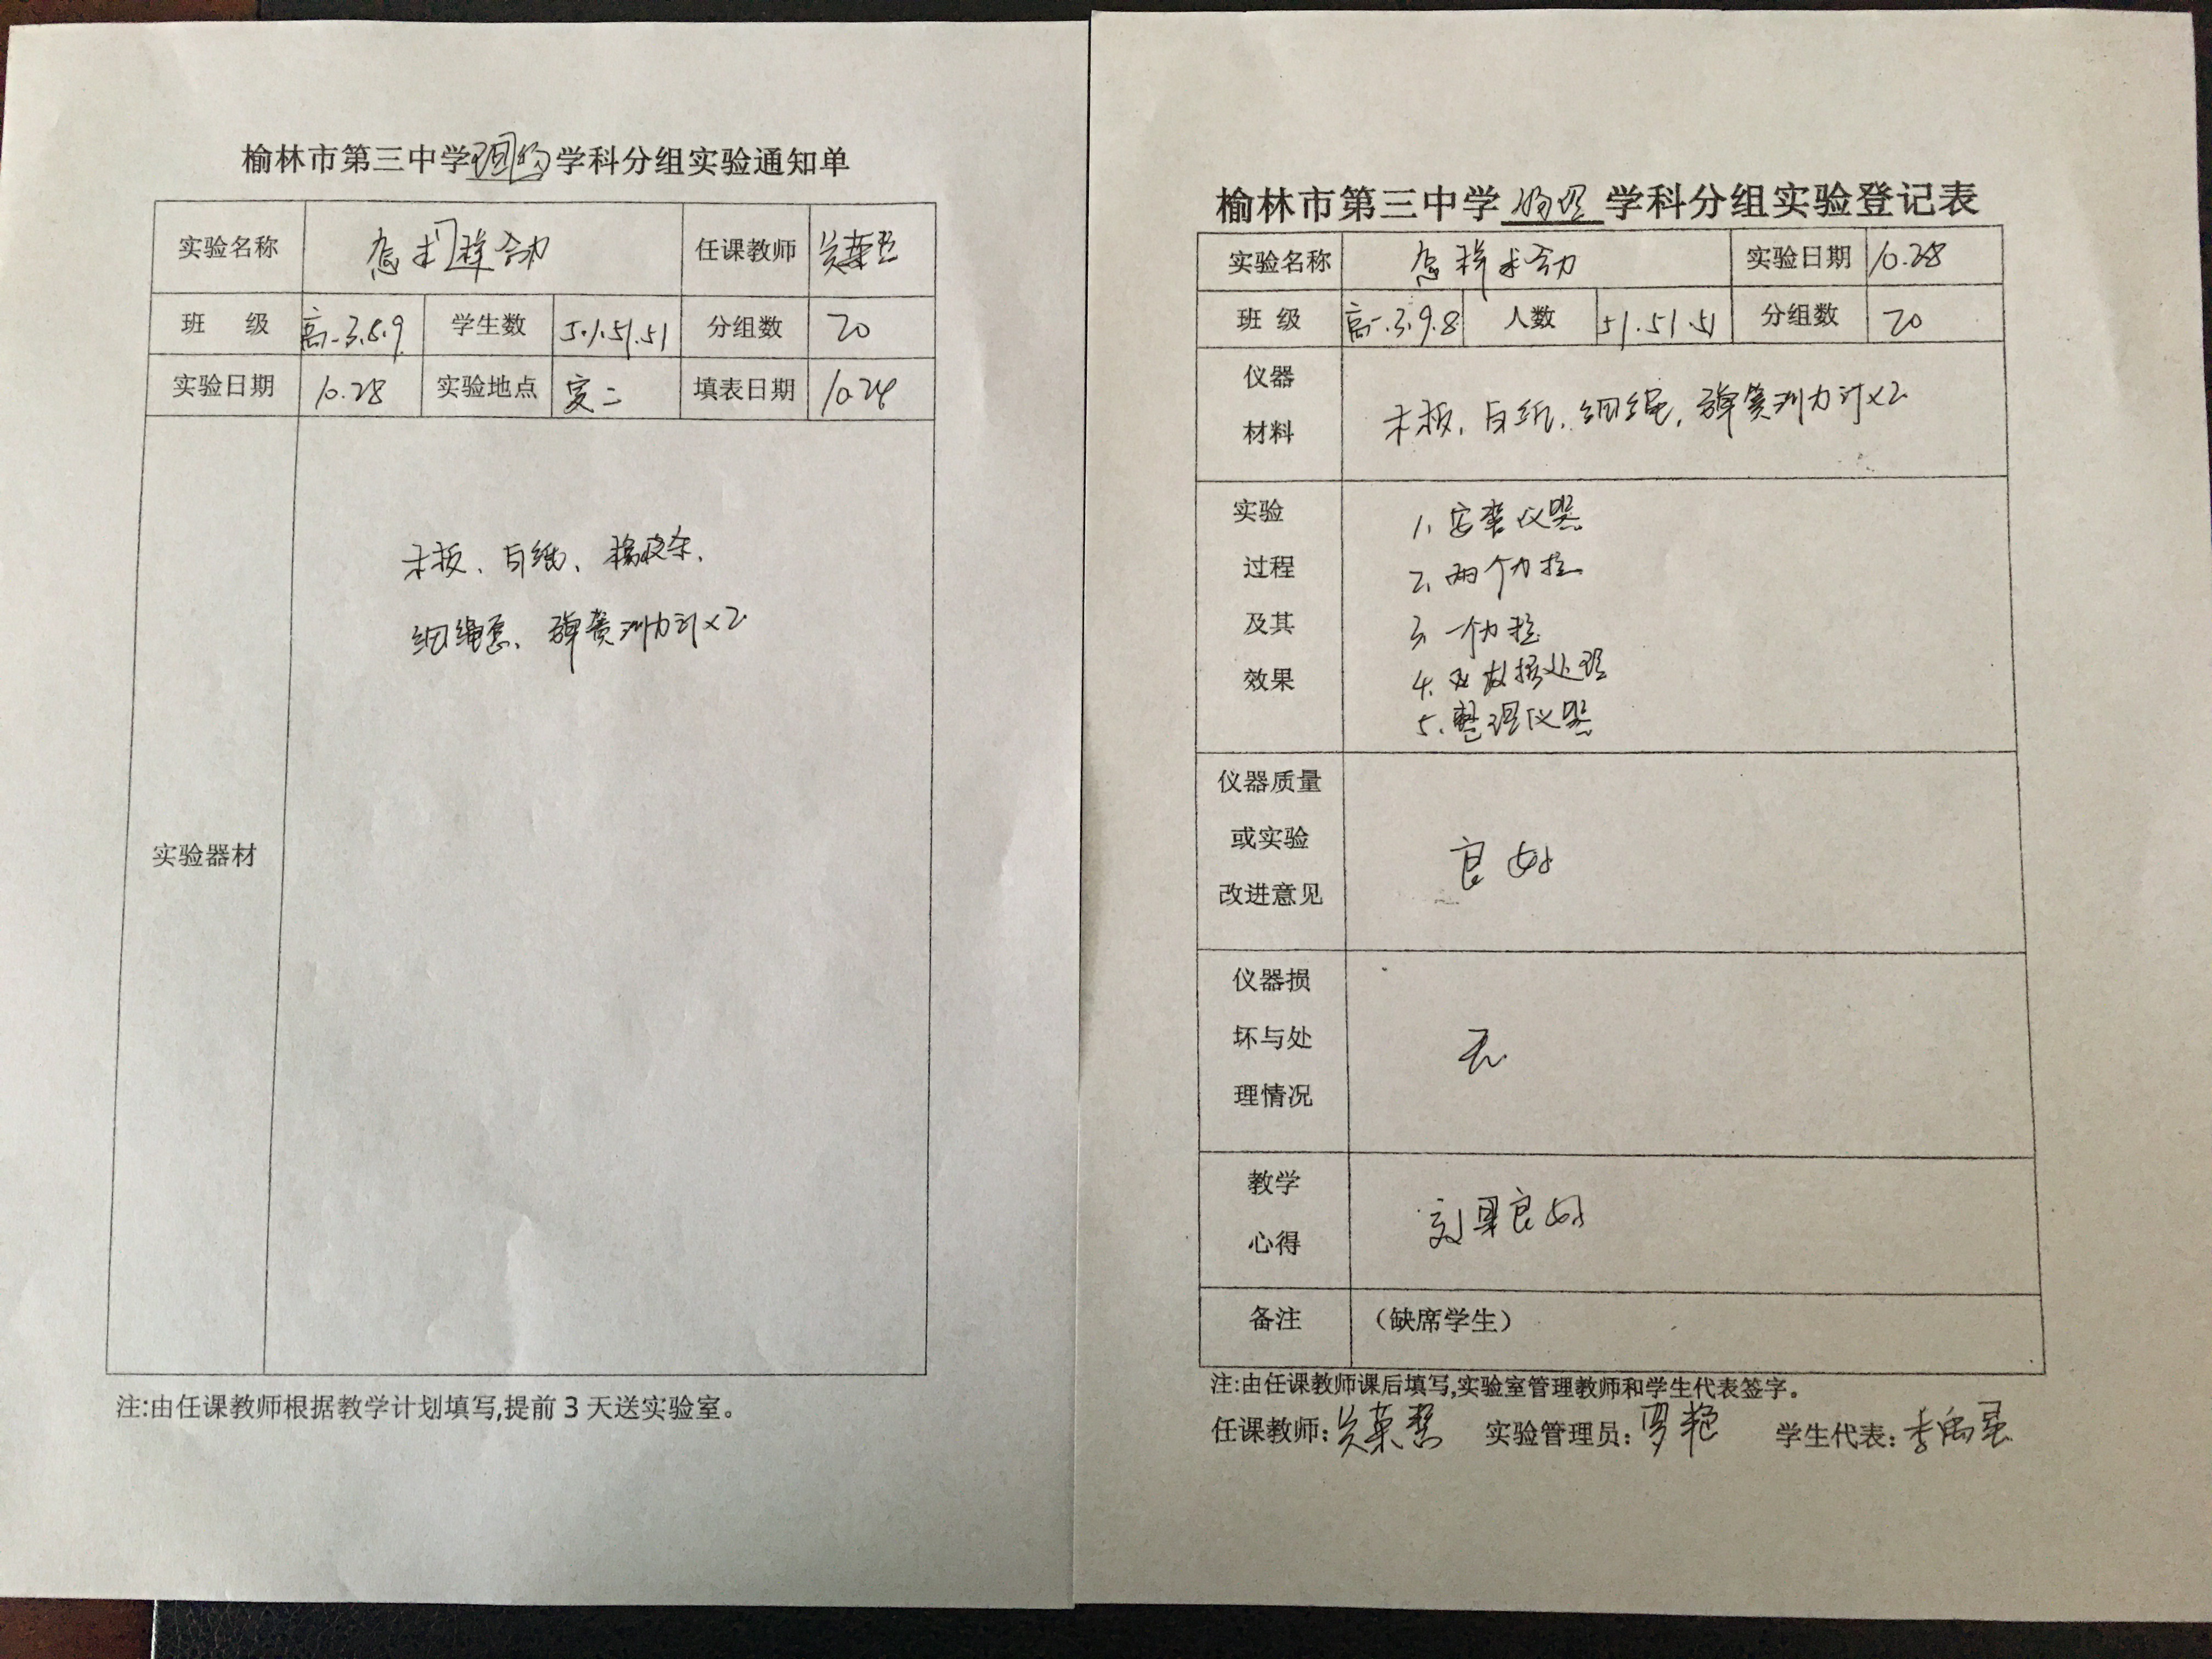 榆林市第三中学理物学科分组实验通知单
实验名称 怎求样合力 任课教师
班 级 高一.3.8.9 学生数 51.51.51 分组数 20
实验日期 10.28 实验地点 实二 填表日期 10.24
实验器材
木板、白纸、橡皮条、
细绳套、弹簧测力计×2
注:由任课教师根据教学计划填写,提前3天送实验室。
榆林市第三中学 物理 学科分组实验登记表
实验名称 怎样求合力 实验日期 10.28
班 级 高一.3.9.8 人数 51.51.51 分组数 20
仪器
材料
木板、白纸、细绳、弹簧测力计×2
实验
过程
及其
效果
1、安装仪器
2、两个力拉
3、一个力拉
4、数据处理
5、整理仪器
仪器质量
或实验
改进意见
良好
仪器损
坏与处
理情况
无
教学
心得
效果良好
备注 (缺席学生)
注:由任课教师课后填写,实验室管理教师和学生代表签字。
任课教师: 实验管理员:罗艳 学生代表:李